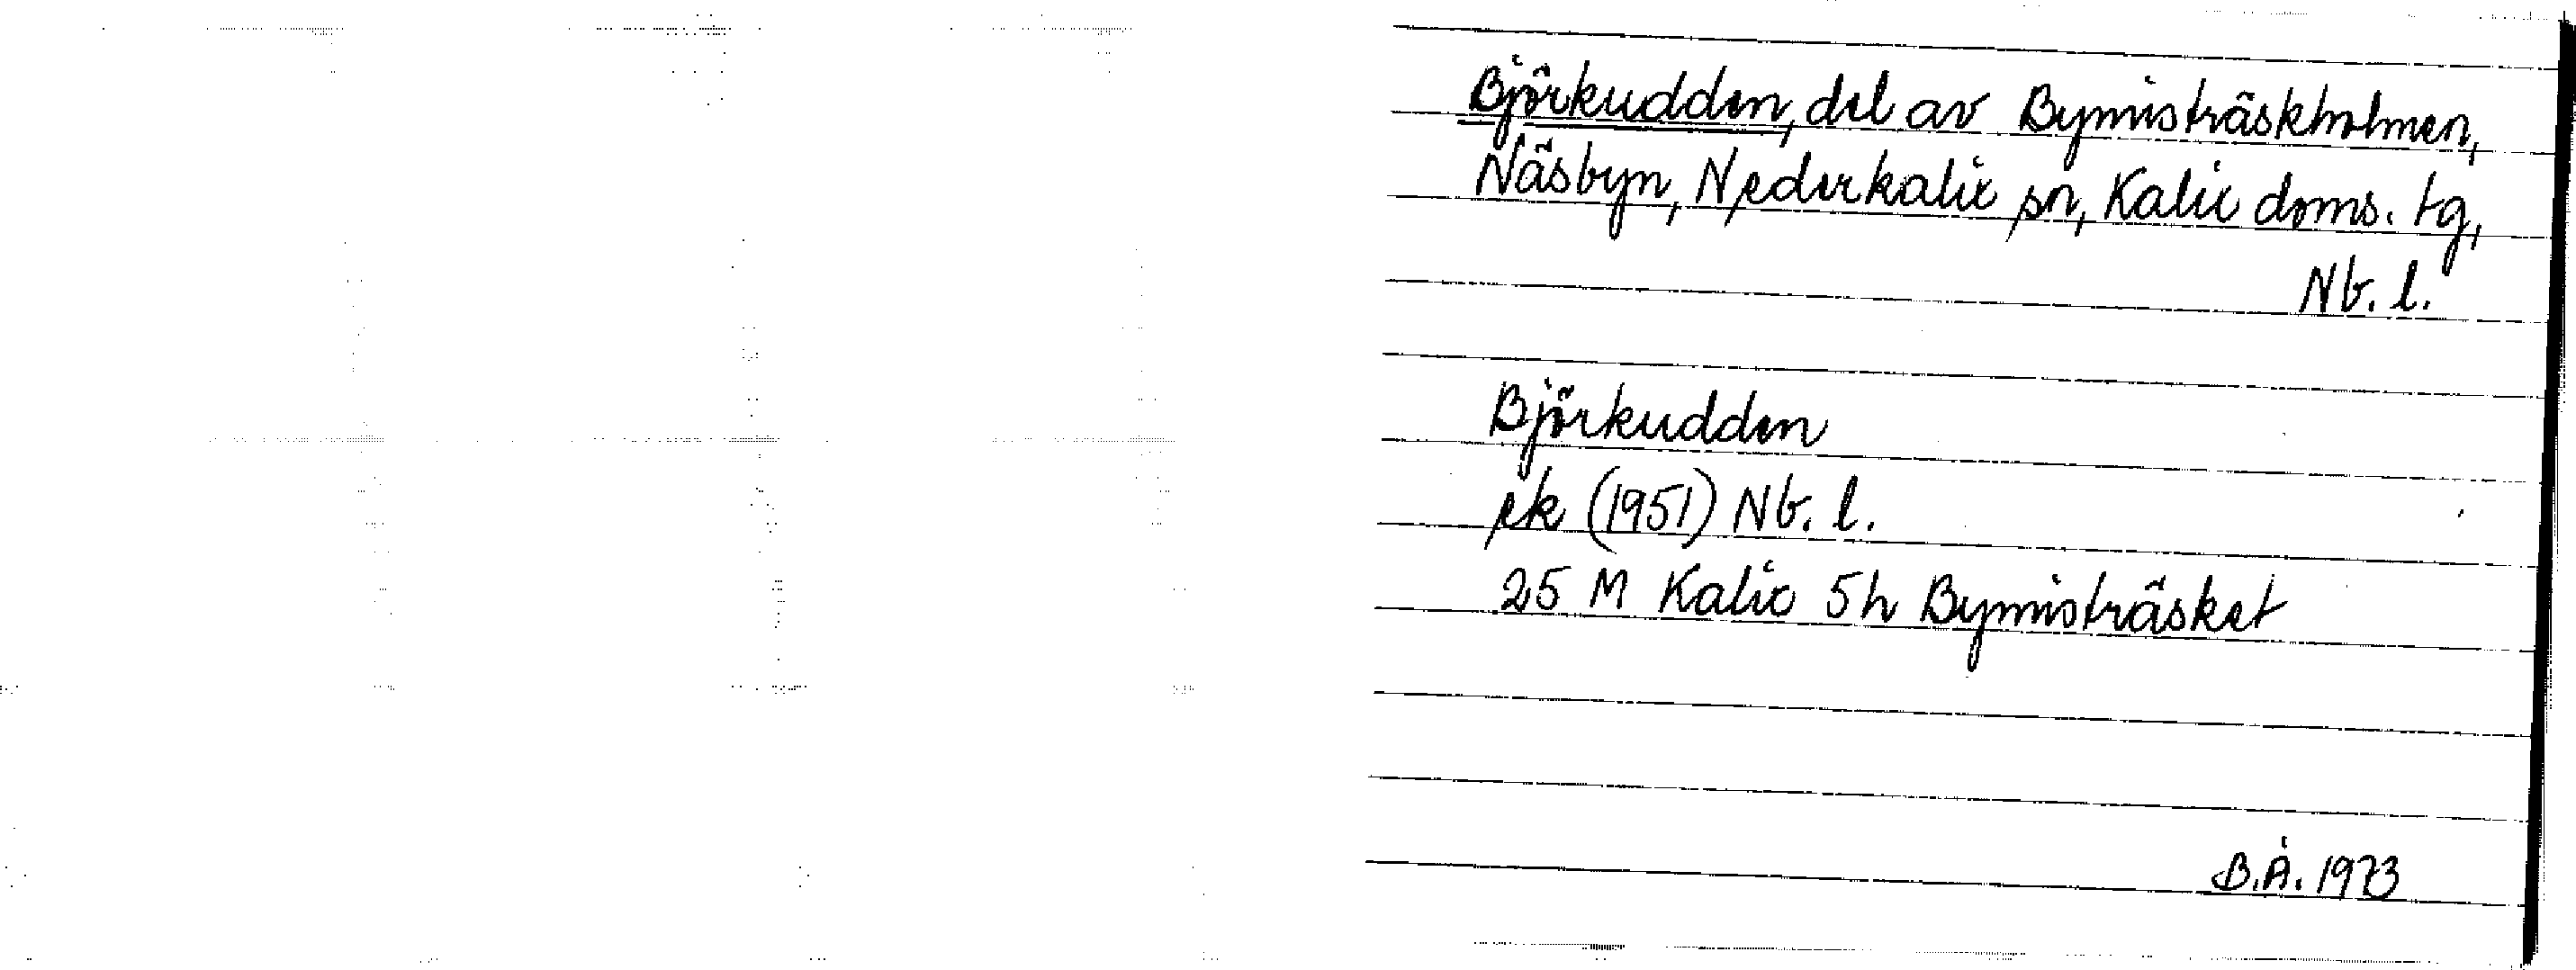 Björkudden, del av Bymisträskholmen,
Näsbyn, Nederkalix sn, Kalix doms. tg,
Nb. l.
Björkudden
ek (1951) Nb. l.
25 M Kalix 5h Bymisträsket
B.Å. 1973